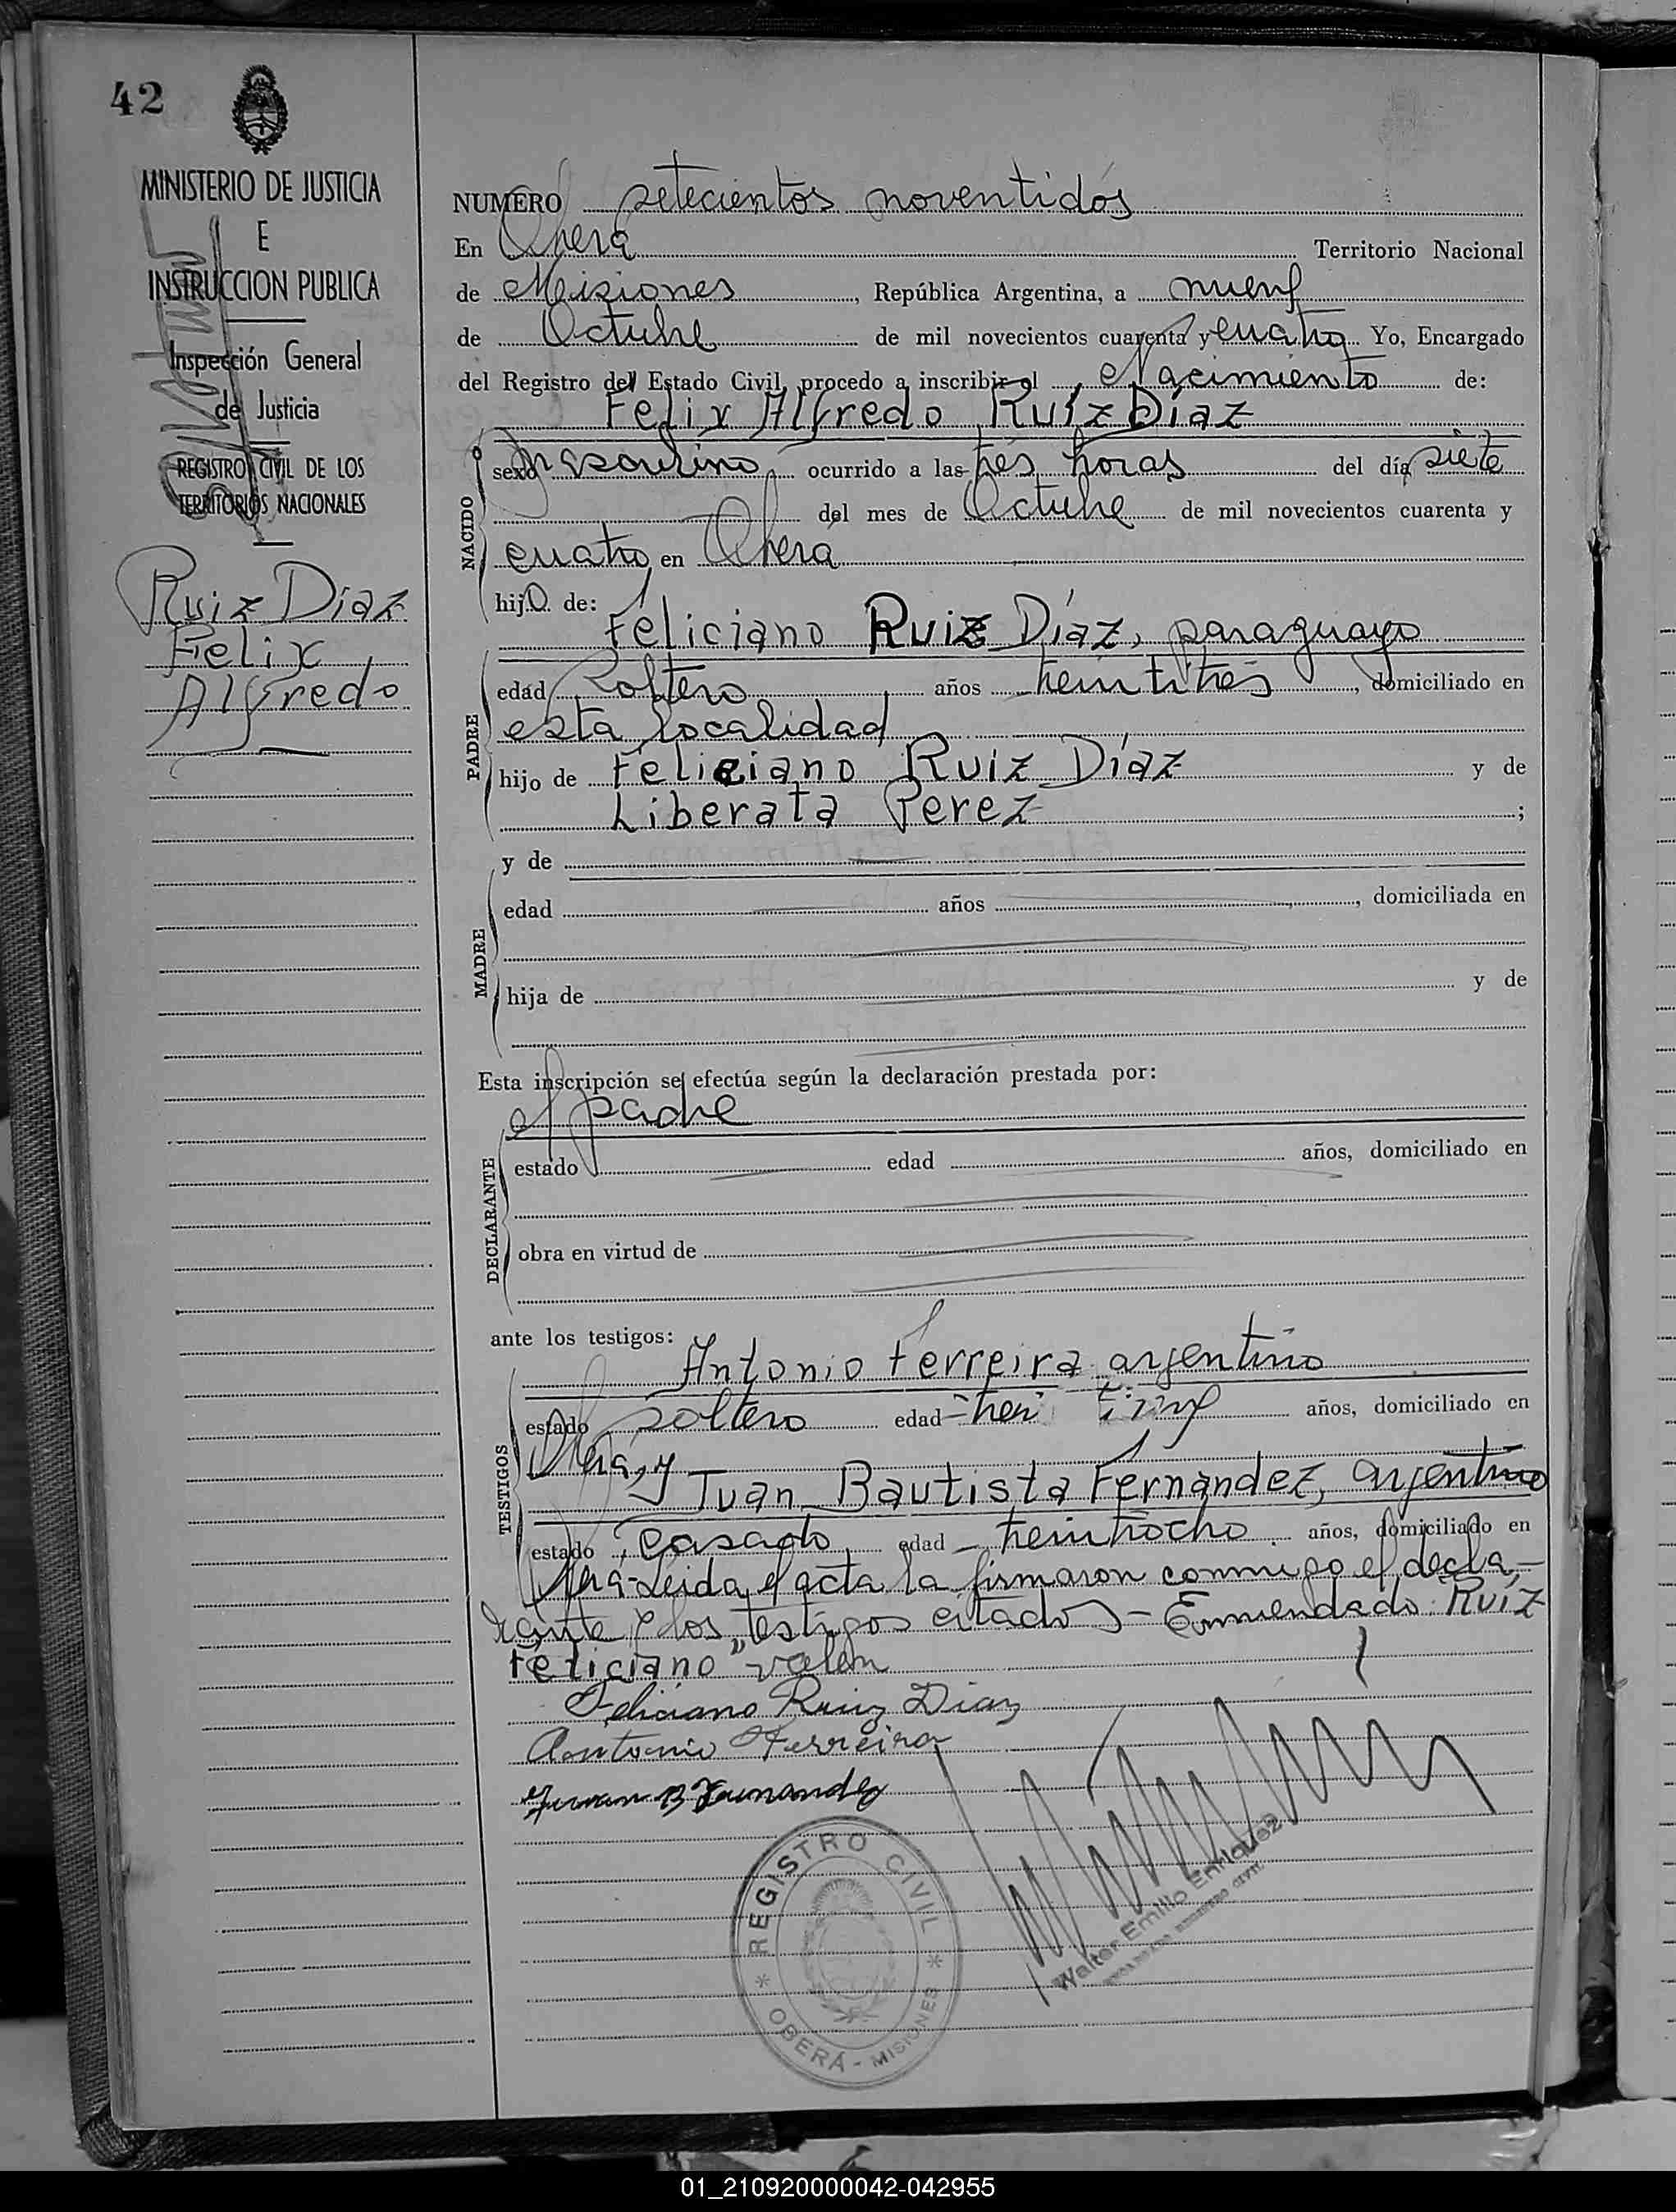 42
MINISTERIO DE JUSTICIA
E
INSTRUCCION PUBLICA
Inspección General
de Justicia
REGISTRO CIVIL DE LOS
TERRITORIOS NACIONALES
Ruiz Díaz
Felix
Alfredo
NUMERO setecientos noventidós
En Oberá Territorio Nacional
de Misiones, República Argentina, a nueve
de Octubre de mil novecientos cuarenta y cuatro Yo, Encargado
del Registro del Estado Civil, procedo a inscribir el Nacimiento de:
Felix Alfredo Ruíz Díaz
NACIDO
sexo masculino, ocurrido a las tres horas del día siete
del mes de Octubre de mil novecientos cuarenta y
cuatro en Oberá
hijo de:
Feliciano Ruiz Díaz, paraguayo
PADRE
edad soltero años treintitrés, domiciliado en
esta localidad
hijo de Feliciano Ruiz Díaz y de
Liberata Perez ;
y de
MADRE
edad años , domiciliada en
hija de y de
Esta inscripción se efectúa según la declaración prestada por:
el padre
DECLARANTE
estado edad años, domiciliado en
obra en virtud de
ante los testigos:
Antonio Ferreira argentino
TESTIGOS
estado soltero edad años, domiciliado en
Oberá, y
Juan Bautista Fernández, argentino
estado casado edad treintiocho años, domiciliado en
Oberá-Leida el acta la firmaron conmigo el decla-
rante y los testigos citados - Enmendado: Ruíz
Feliciano" valen
Feliciano Ruiz Diaz
Antonio Ferreira
Juan B Fernandez
REGISTRO CIVIL
OBERÁ - MISIONES
Walter Emilio Enriquez
01_210920000042-042955